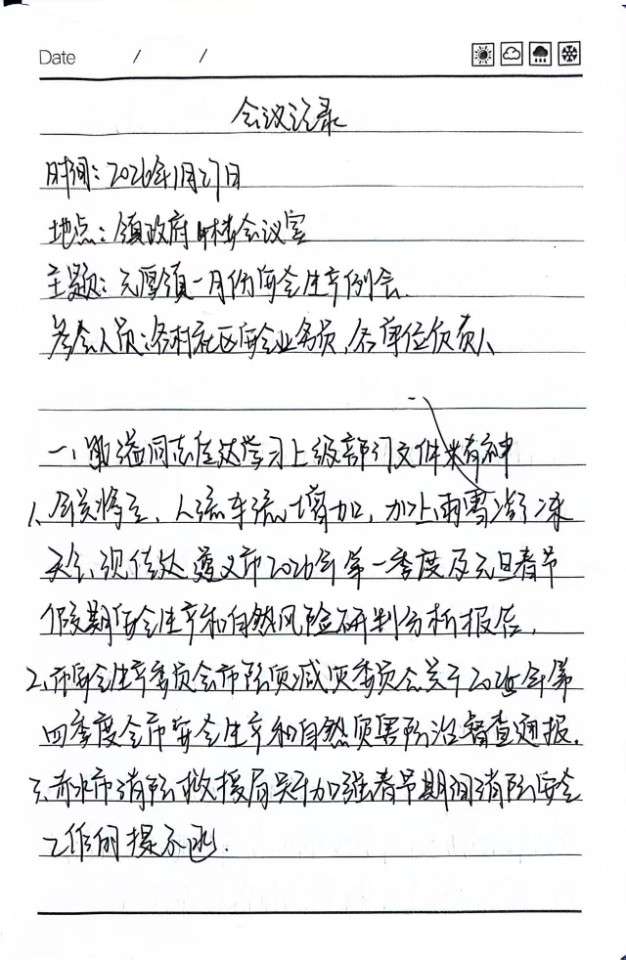 Date / /
会议记录
时间：2026年1月27日
地点：镇政府 楼会议室
主题：元厚镇一月份安全生产例会.
参会人员：各村社区安全业务员，各单位负责人
一、 同志传达学习上级部门文件精神
1、年关将至，人流车流增加，加上雨雪凝冻
天气，现传达遵义市2026年第一季度及元旦春节
假期安全生产和自然风险研判分析报告.
2、市安全生产委员会市防灾减灾委员会关于2025年第
四季度全市安全生产和自然灾害防治督查通报.
3、赤水市消防救援局关于加强春节期间消防安全
工作的提示函.